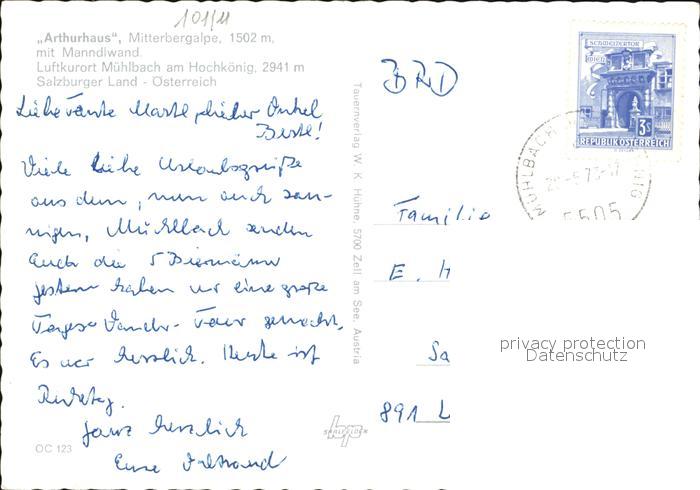 101/11
„Arthurhaus", Mitterbergalpe, 1502 m,
mit Manndlwand.
Luftkurort Mühlbach am Hochkönig, 2941 m
Salzburger Land - Österreich
Liebe Tante Martl, lieber Onkel
Bertl!
Viele liebe Urlaubsgrüße
aus dem, nun auch son-
nigen, Mühlbach senden
Euch die 5
gestern haben wir eine große
Tages Wander-Tour gemacht.
Es war herrlich. Heute ist
Ruhetag.
Ganz herzlich
Eure
OC 123
Tauernverlag W. K. Hühne, 5700 Zell am See, Austria
BRD
SCHWEIZERTOR
WIEN
3S
REPUBLIK ÖSTERREICH
MÜHLBACH
5505
Familie
E. H
Sa
891 L
privacy protection
Datenschutz